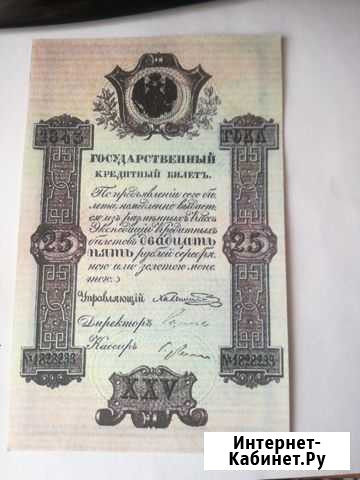 1843 ГОДА
ГОСУДАРСТВЕННЫЙ
КРЕДИТНЫЙ БИЛЕТЪ.
По предъявленіи сего би-
лета, немедленно выдает-
ся изъ размѣнныхъ кассъ
Экспедиціи Кредитныхъ
билетовъ ДВАДЦАТЬ
25 ПЯТЬ рублей серебря- 25
ною или золотою моне-
тою.
Управляющій
Директоръ
Кассиръ
№1828233 №1828233
XXV
Интернет-
Кабинет.Ру